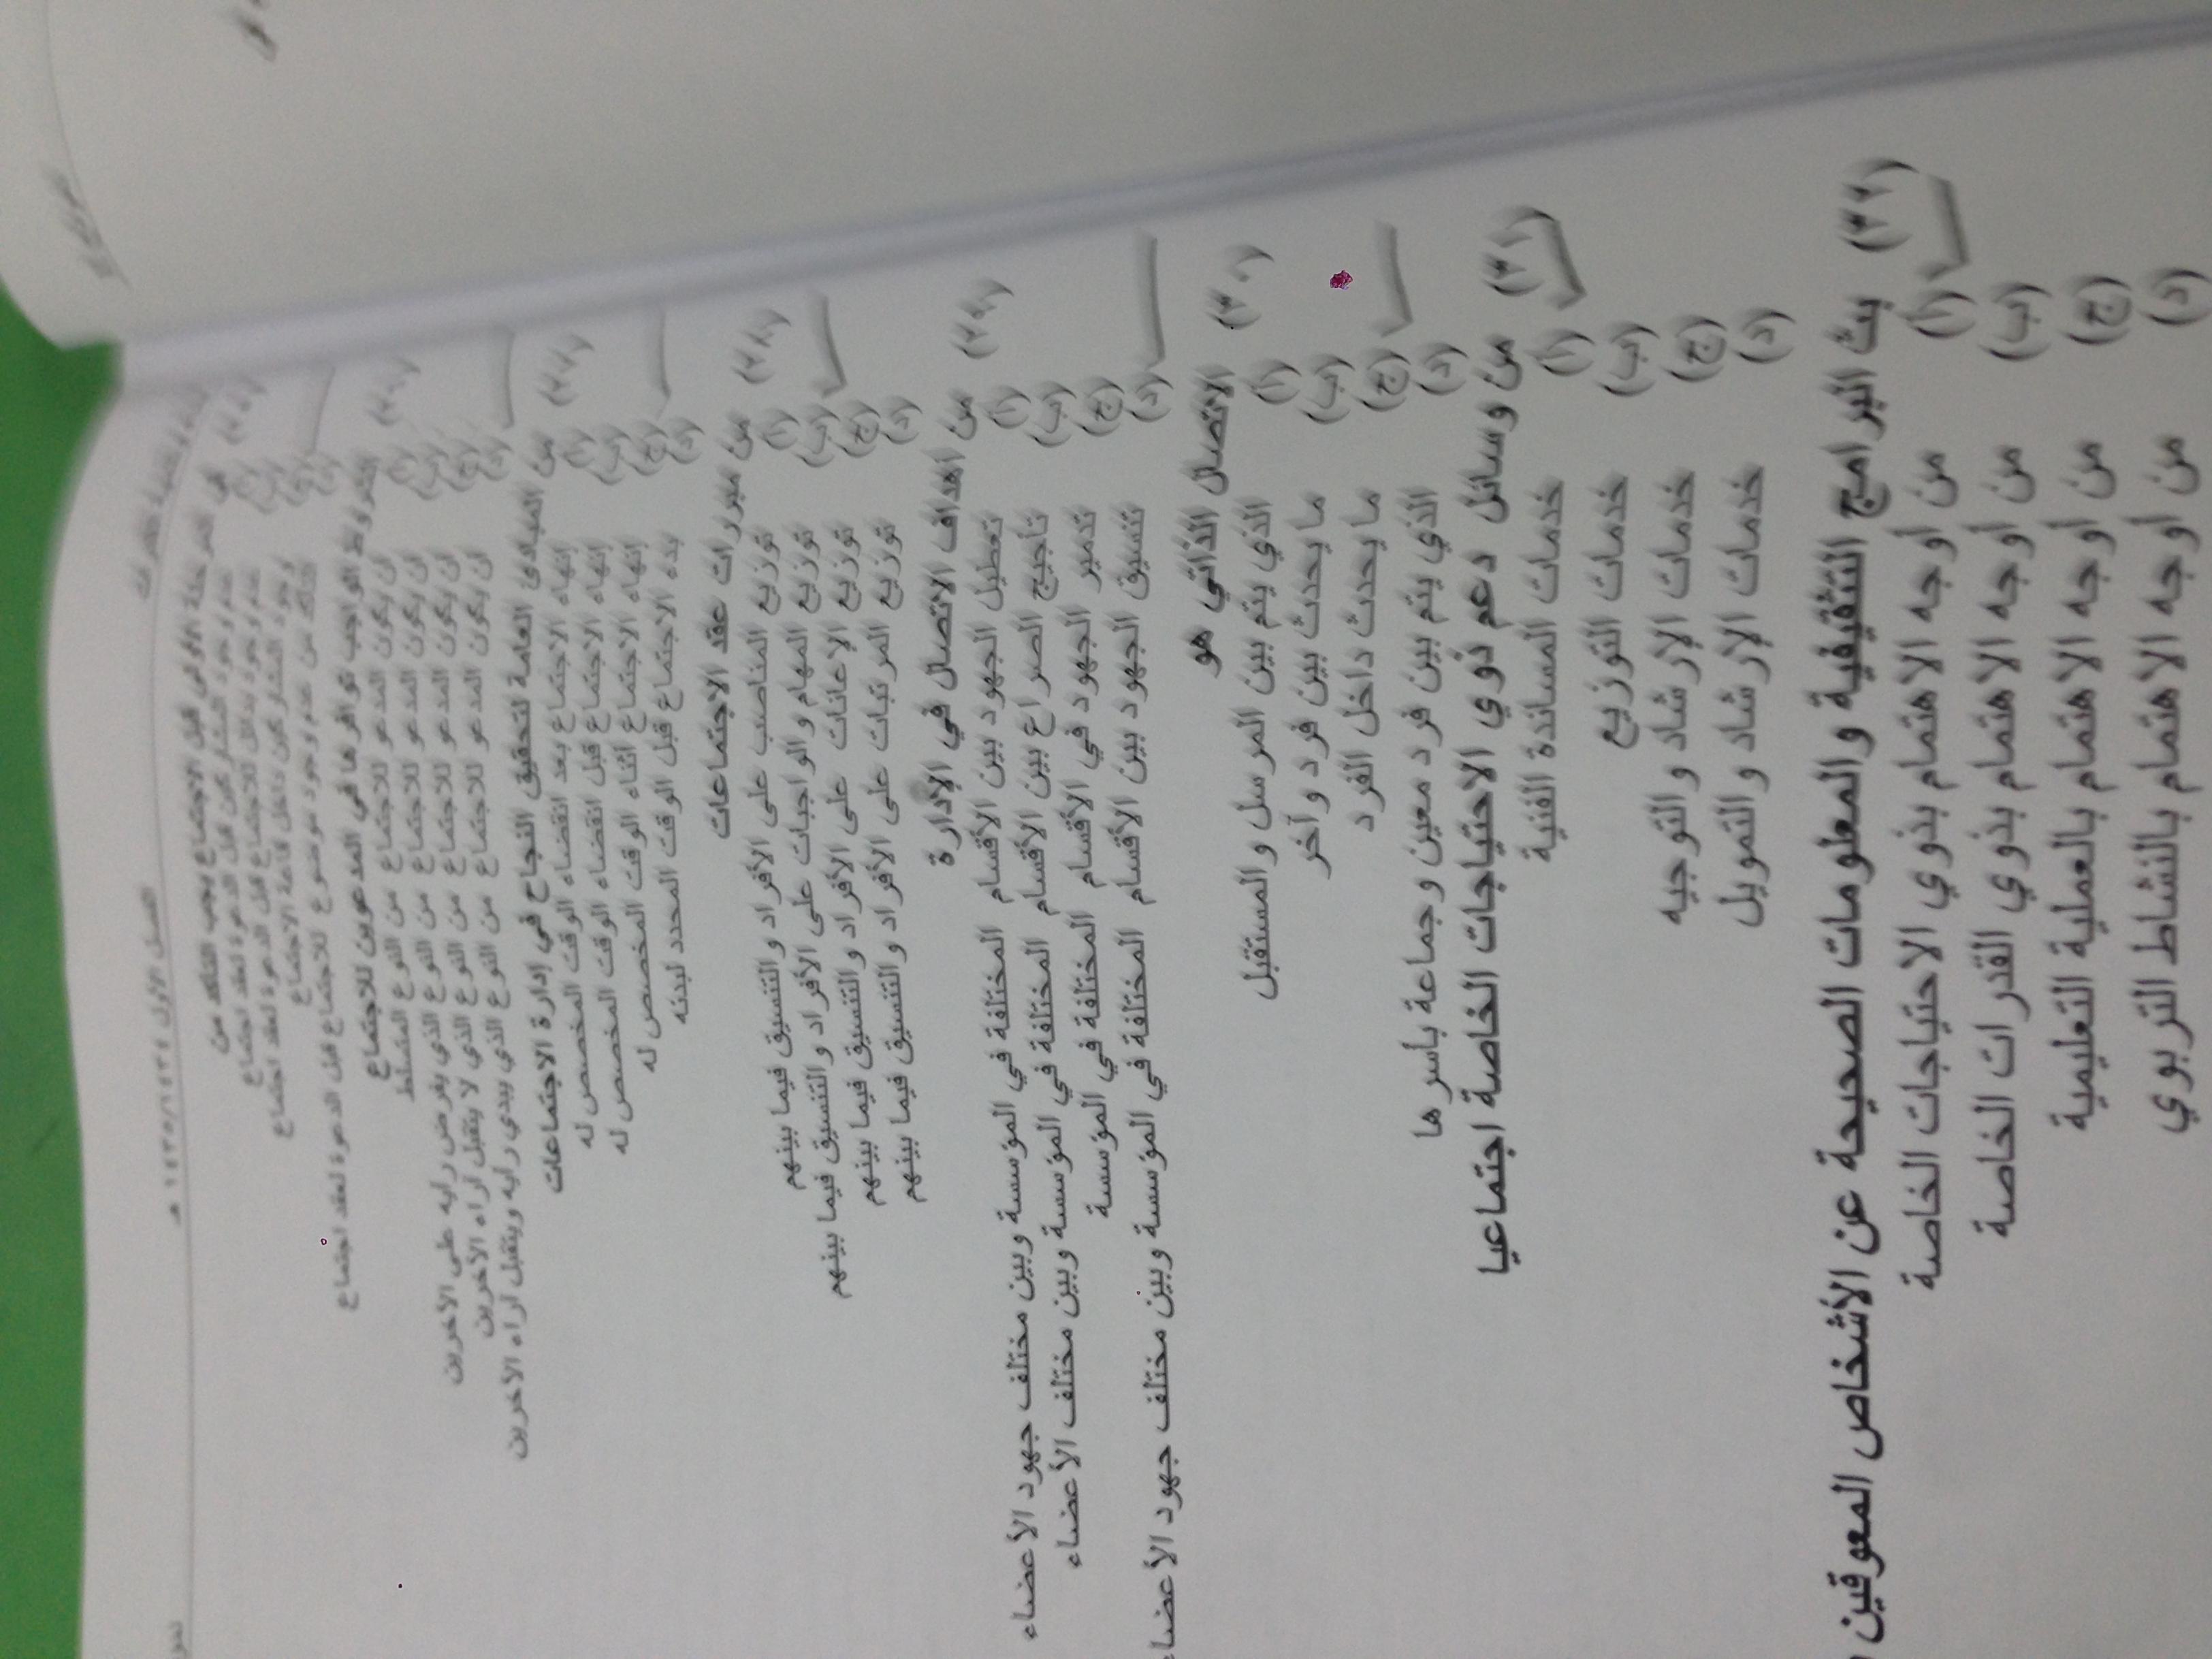 الفصل الأول ١٤٣٤/١٤٣٥ هـ
في المرحلة الأولى قبل الاجتماع يجب التأكد من
(أ) عدم وجود المشاركين قبل الدعوة لعقد اجتماع
(ب) عدم وجود بدائل للاجتماع قبل الدعوة لعقد اجتماع
(ج) وجود المشاركين داخل قاعة الاجتماع
(د) التأكد من عدم وجود موضوع للاجتماع قبل الدعوة لعقد اجتماع
الشروط الواجب توافرها في المدعوين للاجتماع
(أ) أن يكون المدعو للاجتماع من النوع المتسلط
(ب) أن يكون المدعو للاجتماع من النوع الذي يفرض رأيه على الآخرين
(ج) أن يكون المدعو للاجتماع من النوع الذي لا يتقبل آراء الآخرين
(د) أن يكون المدعو للاجتماع من النوع الذي يبدي رأيه ويتقبل آراء الآخرين
(٢٧) من المبادئ العامة لتحقيق النجاح في إدارة الاجتماعات
(أ) إنهاء الاجتماع بعد انقضاء الوقت المخصص له
(ب) إنهاء الاجتماع قبل انقضاء الوقت المخصص له
(ج) إنهاء الاجتماع أثناء الوقت المخصص له
(د) بدء الاجتماع قبل الوقت المحدد لبدئه
(٢٨) من مبررات عقد الاجتماعات
(أ) توزيع المناصب على الأفراد والتنسيق فيما بينهم
(ب) توزيع المهام والواجبات على الأفراد والتنسيق فيما بينهم
(ج) توزيع الإعانات على الأفراد والتنسيق فيما بينهم
(د) توزيع المرتبات على الأفراد والتنسيق فيما بينهم
(٢٩) من أهداف الاتصال في الإدارة
(أ) تعطيل الجهود بين الأقسام المختلفة في المؤسسة وبين مختلف جهود الأعضاء
(ب) تأجيج الصراع بين الأقسام المختلفة في المؤسسة وبين مختلف الأعضاء
(ج) تدمير الجهود في الأقسام المختلفة في المؤسسة
(د) تنسيق الجهود بين الأقسام المختلفة في المؤسسة وبين مختلف جهود الأعضاء
(٣٠) الاتصال الذاتي هو
(أ) الذي يتم بين المرسل والمستقبل
(ب) ما يحدث بين فرد وآخر
(ج) ما يحدث داخل الفرد
(د) الذي يتم بين فرد معين وجماعة بأسرها
(٣١) من وسائل دعم ذوي الاحتياجات الخاصة اجتماعيا
(أ) خدمات المساندة الفنية
(ب) خدمات التوزيع
(ج) خدمات الإرشاد والتوجيه
(د) خدمات الإرشاد والتمويل
(٣٢) بث البرامج التثقيفية والمعلومات الصحيحة عن الأشخاص المعوقين
(أ) من أوجه الاهتمام بذوي الاحتياجات الخاصة
(ب) من أوجه الاهتمام بذوي القدرات الخاصة
(ج) من أوجه الاهتمام بالعملية التعليمية
(د) من أوجه الاهتمام بالنشاط التربوي